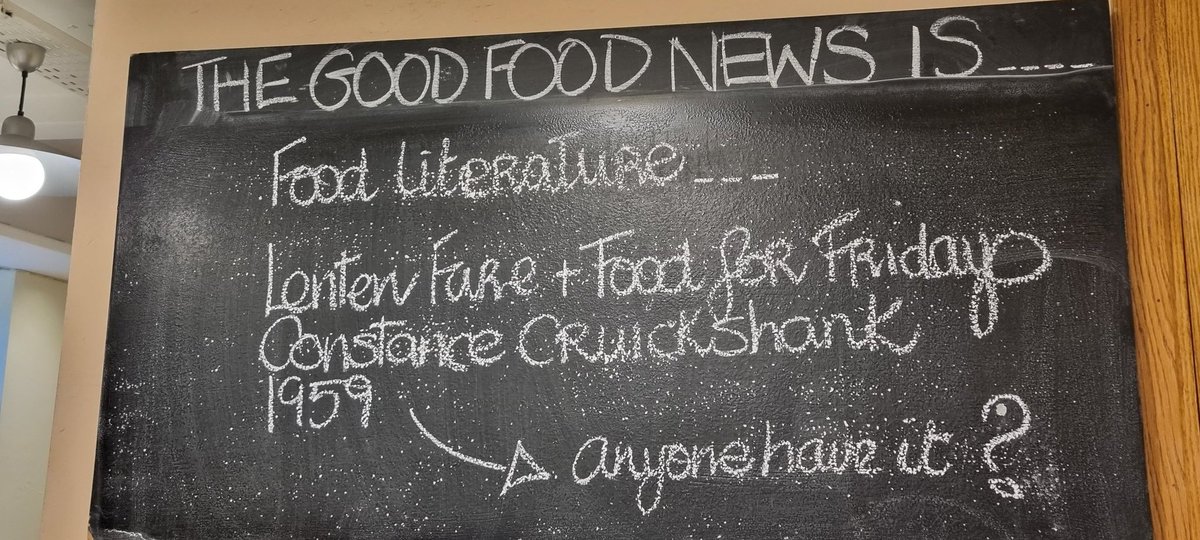 THE GOOD FOOD NEWS IS ----
Food Literature ---
Lenten Fare + Food for Fridays
Constance Cruickshank
1959
anyone have it ?